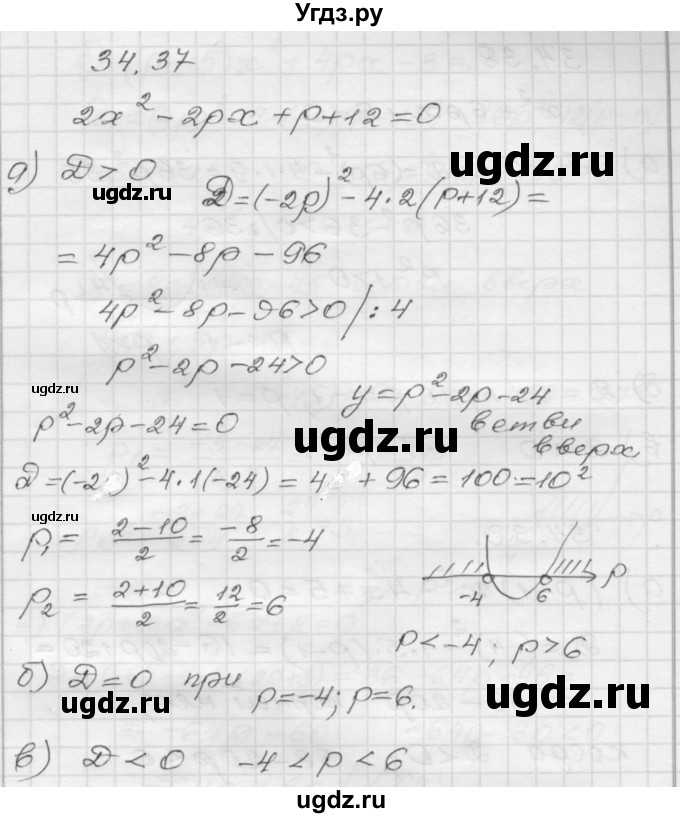 Угдз.ру
34.37
2x² - 2px + p + 12 = 0
а) D > 0
D = (-2p)² - 4·2(p+12) =
= 4p² - 8p - 96
4p² - 8p - 96 > 0 /: 4
p² - 2p - 24 > 0
y = p² - 2p - 24
ветви
вверх
p² - 2p - 24 = 0
D = (-2)² - 4·1(-24) = 4 + 96 = 100 = 10²
p₁ = (2-10)/2 = -8/2 = -4
p₂ = (2+10)/2 = 12/2 = 6
-4 6 p
p < -4; p > 6
б) D = 0 при p = -4; p = 6.
в) D < 0 -4 < p < 6
ugdz.ru
ugdz.ru
ugdz.ru
ugdz.ru
ugdz.ru
ugdz.ru
ugdz.ru
ugdz.ru
ugdz.ru
ugdz.ru